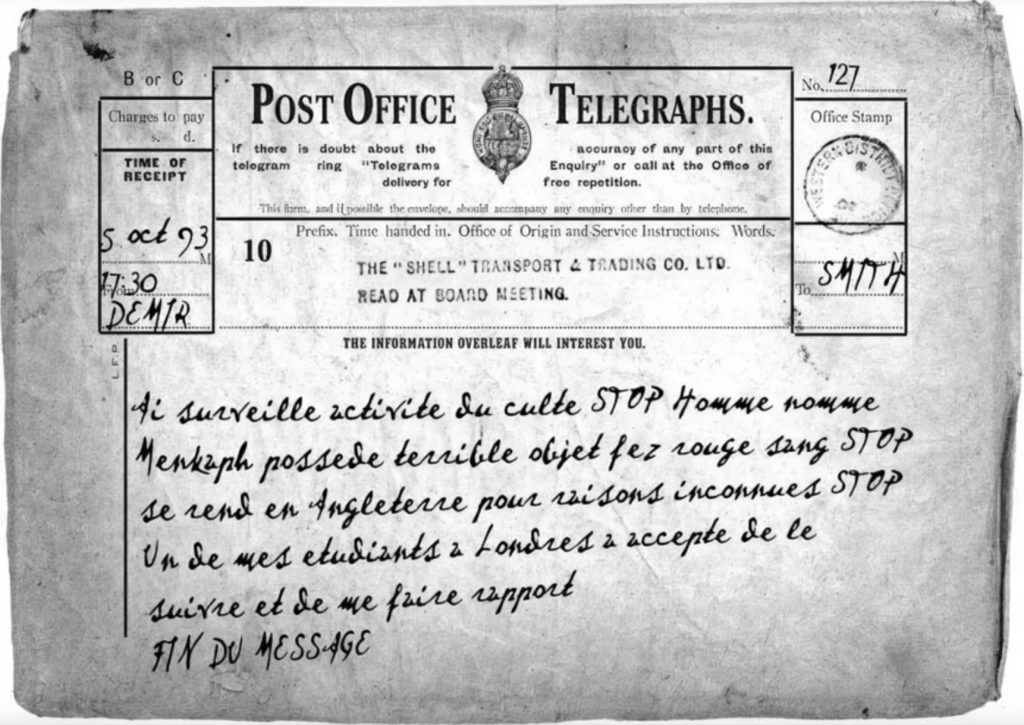 B or C
No. 127
Charges to pay
s. d.
POST OFFICE TELEGRAPHS.
Office Stamp
If there is doubt about the accuracy of any part of this
telegram ring "Telegrams Enquiry" or call at the Office of
delivery for free repetition.
This form, and if possible the envelope, should accompany any enquiry other than by telephone.
TIME OF
RECEIPT
WESTERN DISTRICT OFFICE
5 oct 93
M
17:30
From
DEMIR
10
Prefix. Time handed in. Office of Origin and Service Instructions. Words.
THE "SHELL" TRANSPORT & TRADING CO. LTD.
READ AT BOARD MEETING.
M
To SMITH
THE INFORMATION OVERLEAF WILL INTEREST YOU.
L.F.P.
Ai surveille activite du culte STOP Homme nomme
Menkaph possede terrible objet fez rouge sang STOP
se rend en Angleterre pour raisons inconnues STOP
Un de mes etudiants a Londres a accepte de le
suivre et de me faire rapport
FIN DU MESSAGE